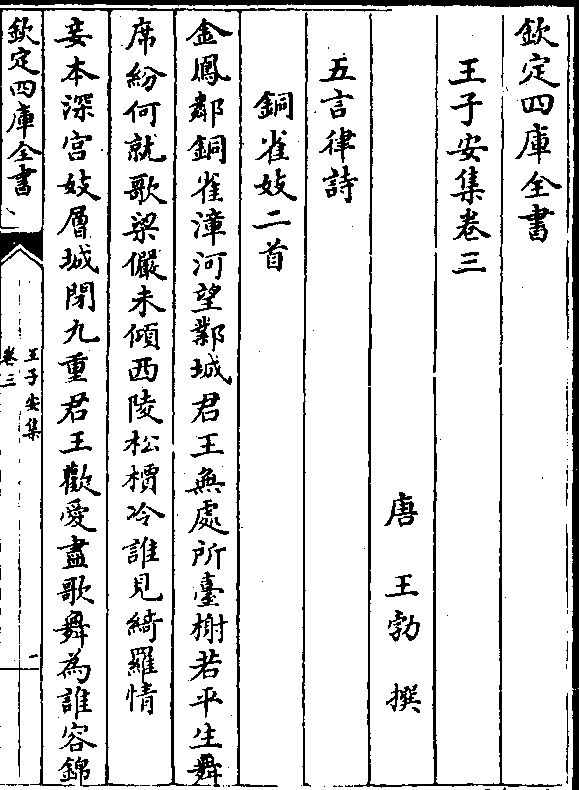 欽定四庫全書
王子安集卷三
唐 王勃 撰
五言律詩
銅雀妓二首
金鳳鄰銅雀漳河望鄴城君王無處所臺榭若平生舞
席紛何就歌梁儼未傾西陵松檟冷誰見綺羅情
妾本深宮妓層城閉九重君王歡愛盡歌舞為誰容錦
欽定四庫全書
王子安集
卷三
一